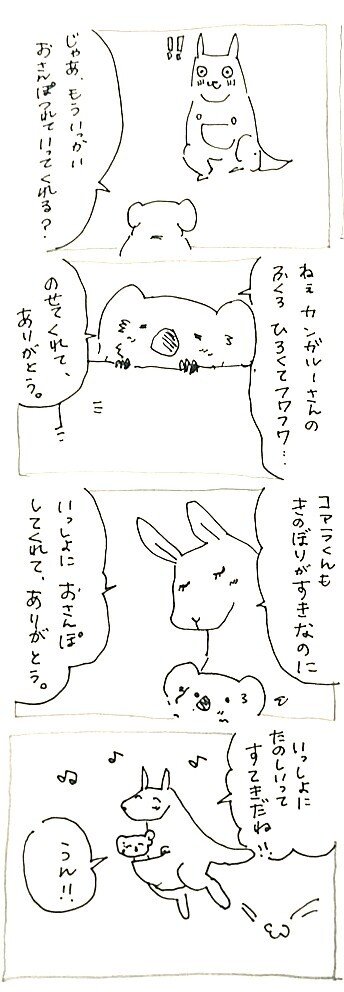 !!
じゃあ、もういっかい
おさんぽつれていってくれる?
ねぇ カンガルーさんの
ふくろ ひろくてフワフワ…
のせてくれて、
ありがとう。
コアラくんも
きのぼりがすきなのに
いっしょに おさんぽ
してくれて、ありがとう。
いっしょに
たのしいって
すてきだね!!
うん!!